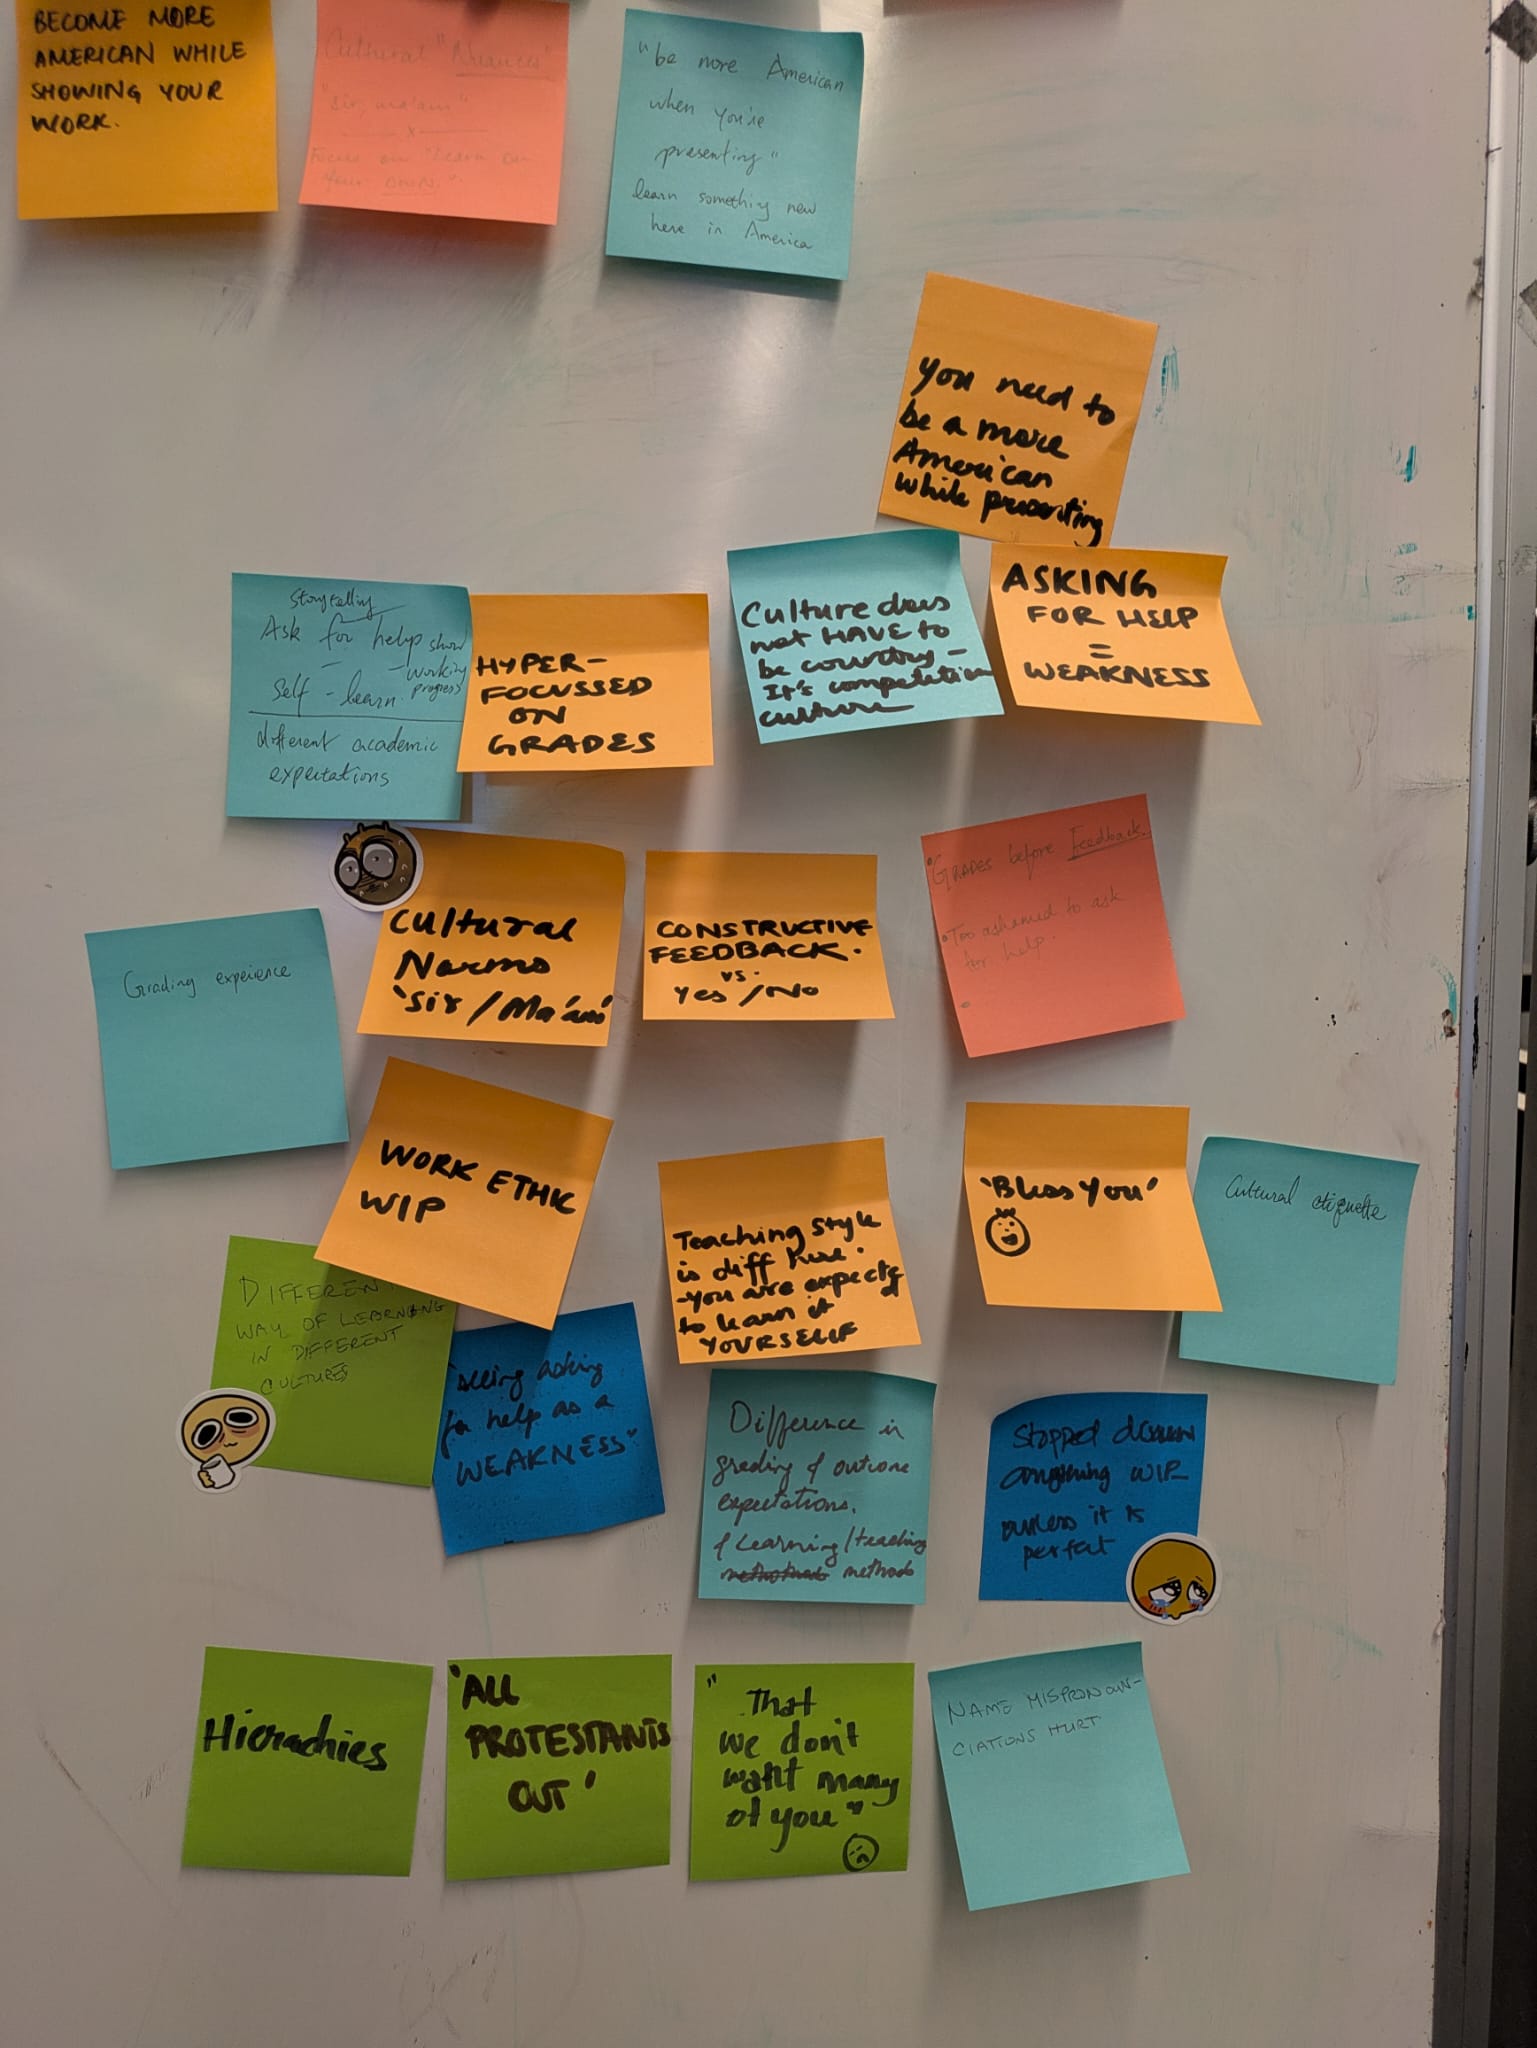 BECOME MORE
AMERICAN WHILE
SHOWING YOUR
WORK.
Cultural "Nuances"
"Sir, ma'am"
x
Focus on "Learn on
Your own".
"be more American
when you're
presenting"
learn something new
here in America
you need to
be a more
American
while presenting
Storytelling
Ask for help show
working
progress
Self - learn.
different academic
expectations
HYPER-
FOCUSSED
ON
GRADES
Culture does
not HAVE to
be country -
It's competition
culture
ASKING
FOR HELP
=
WEAKNESS
Cultural
Norms
'Sir/Ma'am'
CONSTRUCTIVE
FEEDBACK.
vs.
Yes/No
• GRADES before Feedback.
• Too ashamed to ask
for help.
Grading experience
WORK ETHIC
WIP
Teaching style
is diff here.
-you are expected
to learn it
YOURSELF
'Bless You'
Cultural etiquette
DIFFEREN
WAY OF LEARNING
IN DIFFERENT
CULTURES
"seeing asking
for help as a
WEAKNESS"
Difference in
grading & outcome
expectations.
& Learning/teaching
methods
Stopped
anything WIP
unless it is
perfect
Hierachies
'ALL
PROTESTANTS
OUT'
"That
we don't
want many
of you"
NAME MISPRONOUN-
CIATIONS HURT.